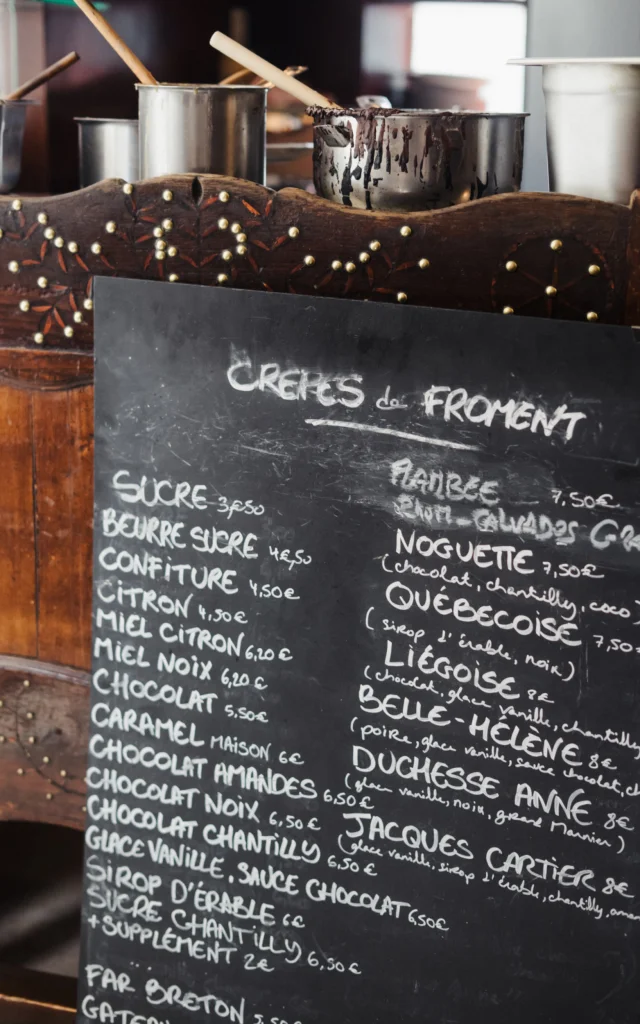 CRÊPES de FROMENT
SUCRE 3,50
BEURRE SUCRE 4€,50
CONFITURE 4,50€
CITRON 4,50€
MIEL CITRON 6,20€
MIEL NOIX 6,20€
CHOCOLAT 5,50€
CARAMEL MAISON 6€
CHOCOLAT AMANDES 6,50€
CHOCOLAT NOIX 6,50€
CHOCOLAT CHANTILLY 6,50€
GLACE VANILLE, SAUCE CHOCOLAT 6,50€
SIROP D'ÉRABLE 6€
SUCRE CHANTILLY 6,50€
+SUPPLÉMENT 2€
FAR BRETON
FLAMBÉE 7,50€
RHUM-CALVADOS
NOGUETTE 7,50€
(chocolat, chantilly, coco
QUÉBECOISE 7,50
(sirop d'érable, noix)
LIÉGOISE 8€
(chocolat, glace vanille, chantilly
BELLE-HÉLÈNE 8€
(poire, glace vanille, sauce chocolat,
DUCHESSE ANNE 8€
(glace vanille, noix, grand Marnier)
JACQUES CARTIER 8€
(glace vanille, sirop d'érable, chantilly,